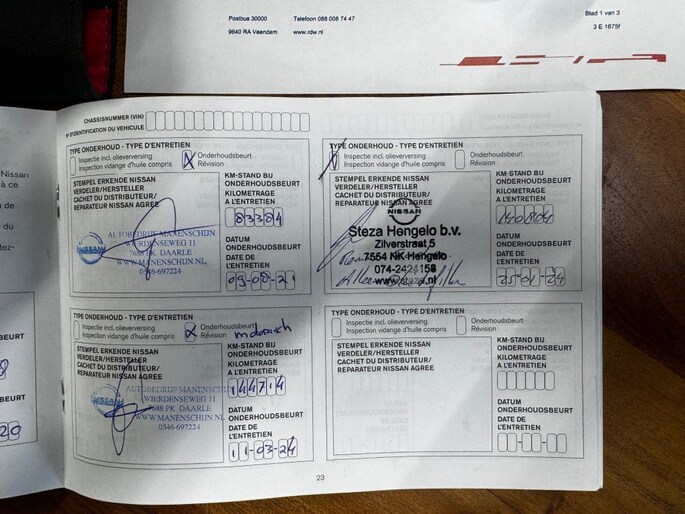 Postbus 30000
Telefoon 088 008 74 47
9640 RA Veendam
www.rdw.nl
Blad 1 van 3
3 E 1675f
Nissan
à ce
de
du
tez-
BEURT
20
CHASSISNUMMER (VIN)
N° D'IDENTIFICATION DU VEHICULE
TYPE ONDERHOUD - TYPE D'ENTRETIEN
Inspectie incl. olieverversing
Inspection vidange d'huile compris
X
Onderhoudsbeurt
Révision
STEMPEL ERKENDE NISSAN
VERDELER/HERSTELLER
CACHET DU DISTRIBUTEUR/
REPARATEUR NISSAN AGREE
NISSAN
AUTOBEDRIJF MANENSCHIJN
WIERDENSEWEG 11
7688 PK DAARLE
WWW.MANENSCHIJN.NL
0546-697224
KM-STAND BIJ
ONDERHOUDSBEURT
KILOMETRAGE
A L'ENTRETIEN
83384
DATUM
ONDERHOUDSBEURT
DATE DE
L'ENTRETIEN
TYPE ONDERHOUD - TYPE D'ENTRETIEN
Inspectie incl. olieverversing
Inspection vidange d'huile compris
Onderhoudsbeurt
Révision
STEMPEL ERKENDE NISSAN
VERDELER/HERSTELLER
CACHET DU DISTRIBUTEUR/
REPARATEUR NISSAN AGREE
NISSAN
Steza Hengelo b.v.
Zilverstraat 5
7554 NK Hengelo
074-2424158
www.steza.nl
KM-STAND BIJ
ONDERHOUDSBEURT
KILOMETRAGE
A L'ENTRETIEN
140804
DATUM
ONDERHOUDSBEURT
DATE DE
L'ENTRETIEN
25-01-24
TYPE ONDERHOUD - TYPE D'ENTRETIEN
Inspectie incl. olieverversing
Inspection vidange d'huile compris
X
Onderhoudsbeurt
Révision
STEMPEL ERKENDE NISSAN
VERDELER/HERSTELLER
CACHET DU DISTRIBUTEUR/
REPARATEUR NISSAN AGREE
NISSAN
AUTOBEDRIJF MANENSCHIJN
WIERDENSEWEG 11
7688 PK DAARLE
WWW.MANENSCHIJN.NL
0546-697224
KM-STAND BIJ
ONDERHOUDSBEURT
KILOMETRAGE
A L'ENTRETIEN
144714
DATUM
ONDERHOUDSBEURT
DATE DE
L'ENTRETIEN
11-03-24
TYPE ONDERHOUD - TYPE D'ENTRETIEN
Inspectie incl. olieverversing
Inspection vidange d'huile compris
Onderhoudsbeurt
Révision
STEMPEL ERKENDE NISSAN
VERDELER/HERSTELLER
CACHET DU DISTRIBUTEUR/
REPARATEUR NISSAN AGREE
KM-STAND BIJ
ONDERHOUDSBEURT
KILOMETRAGE
A L'ENTRETIEN
DATUM
ONDERHOUDSBEURT
DATE DE
L'ENTRETIEN
23